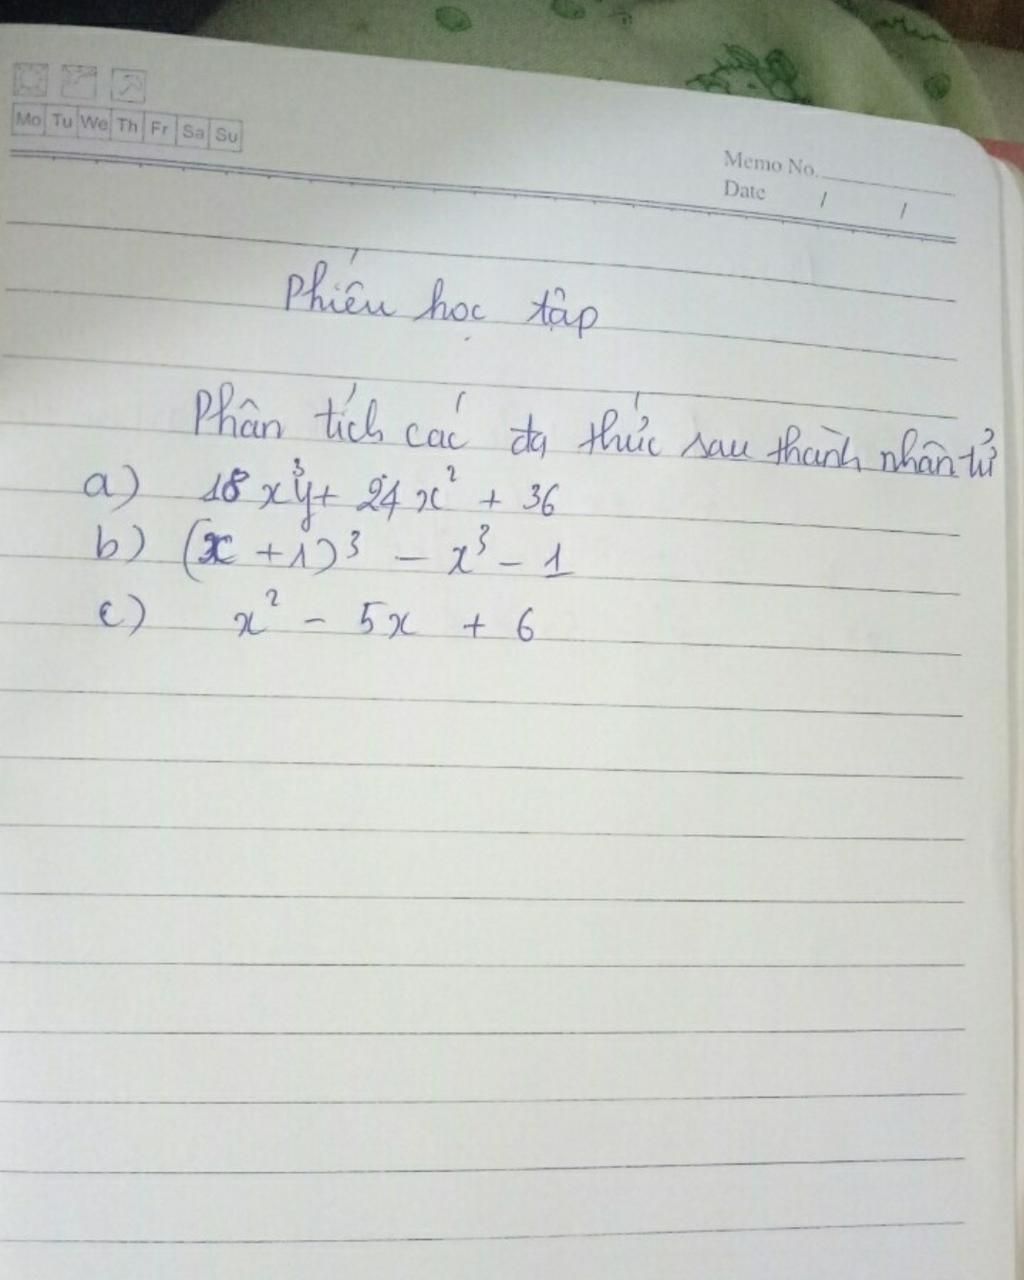 Mo Tu We Th Fr Sa Su
Memo No.
Date / /
Phiếu học tập
Phân tích các đa thức sau thành nhân tử
a) 18x³y + 24x² + 36
b) (x + 1)³ - x³ - 1
c) x² - 5x + 6